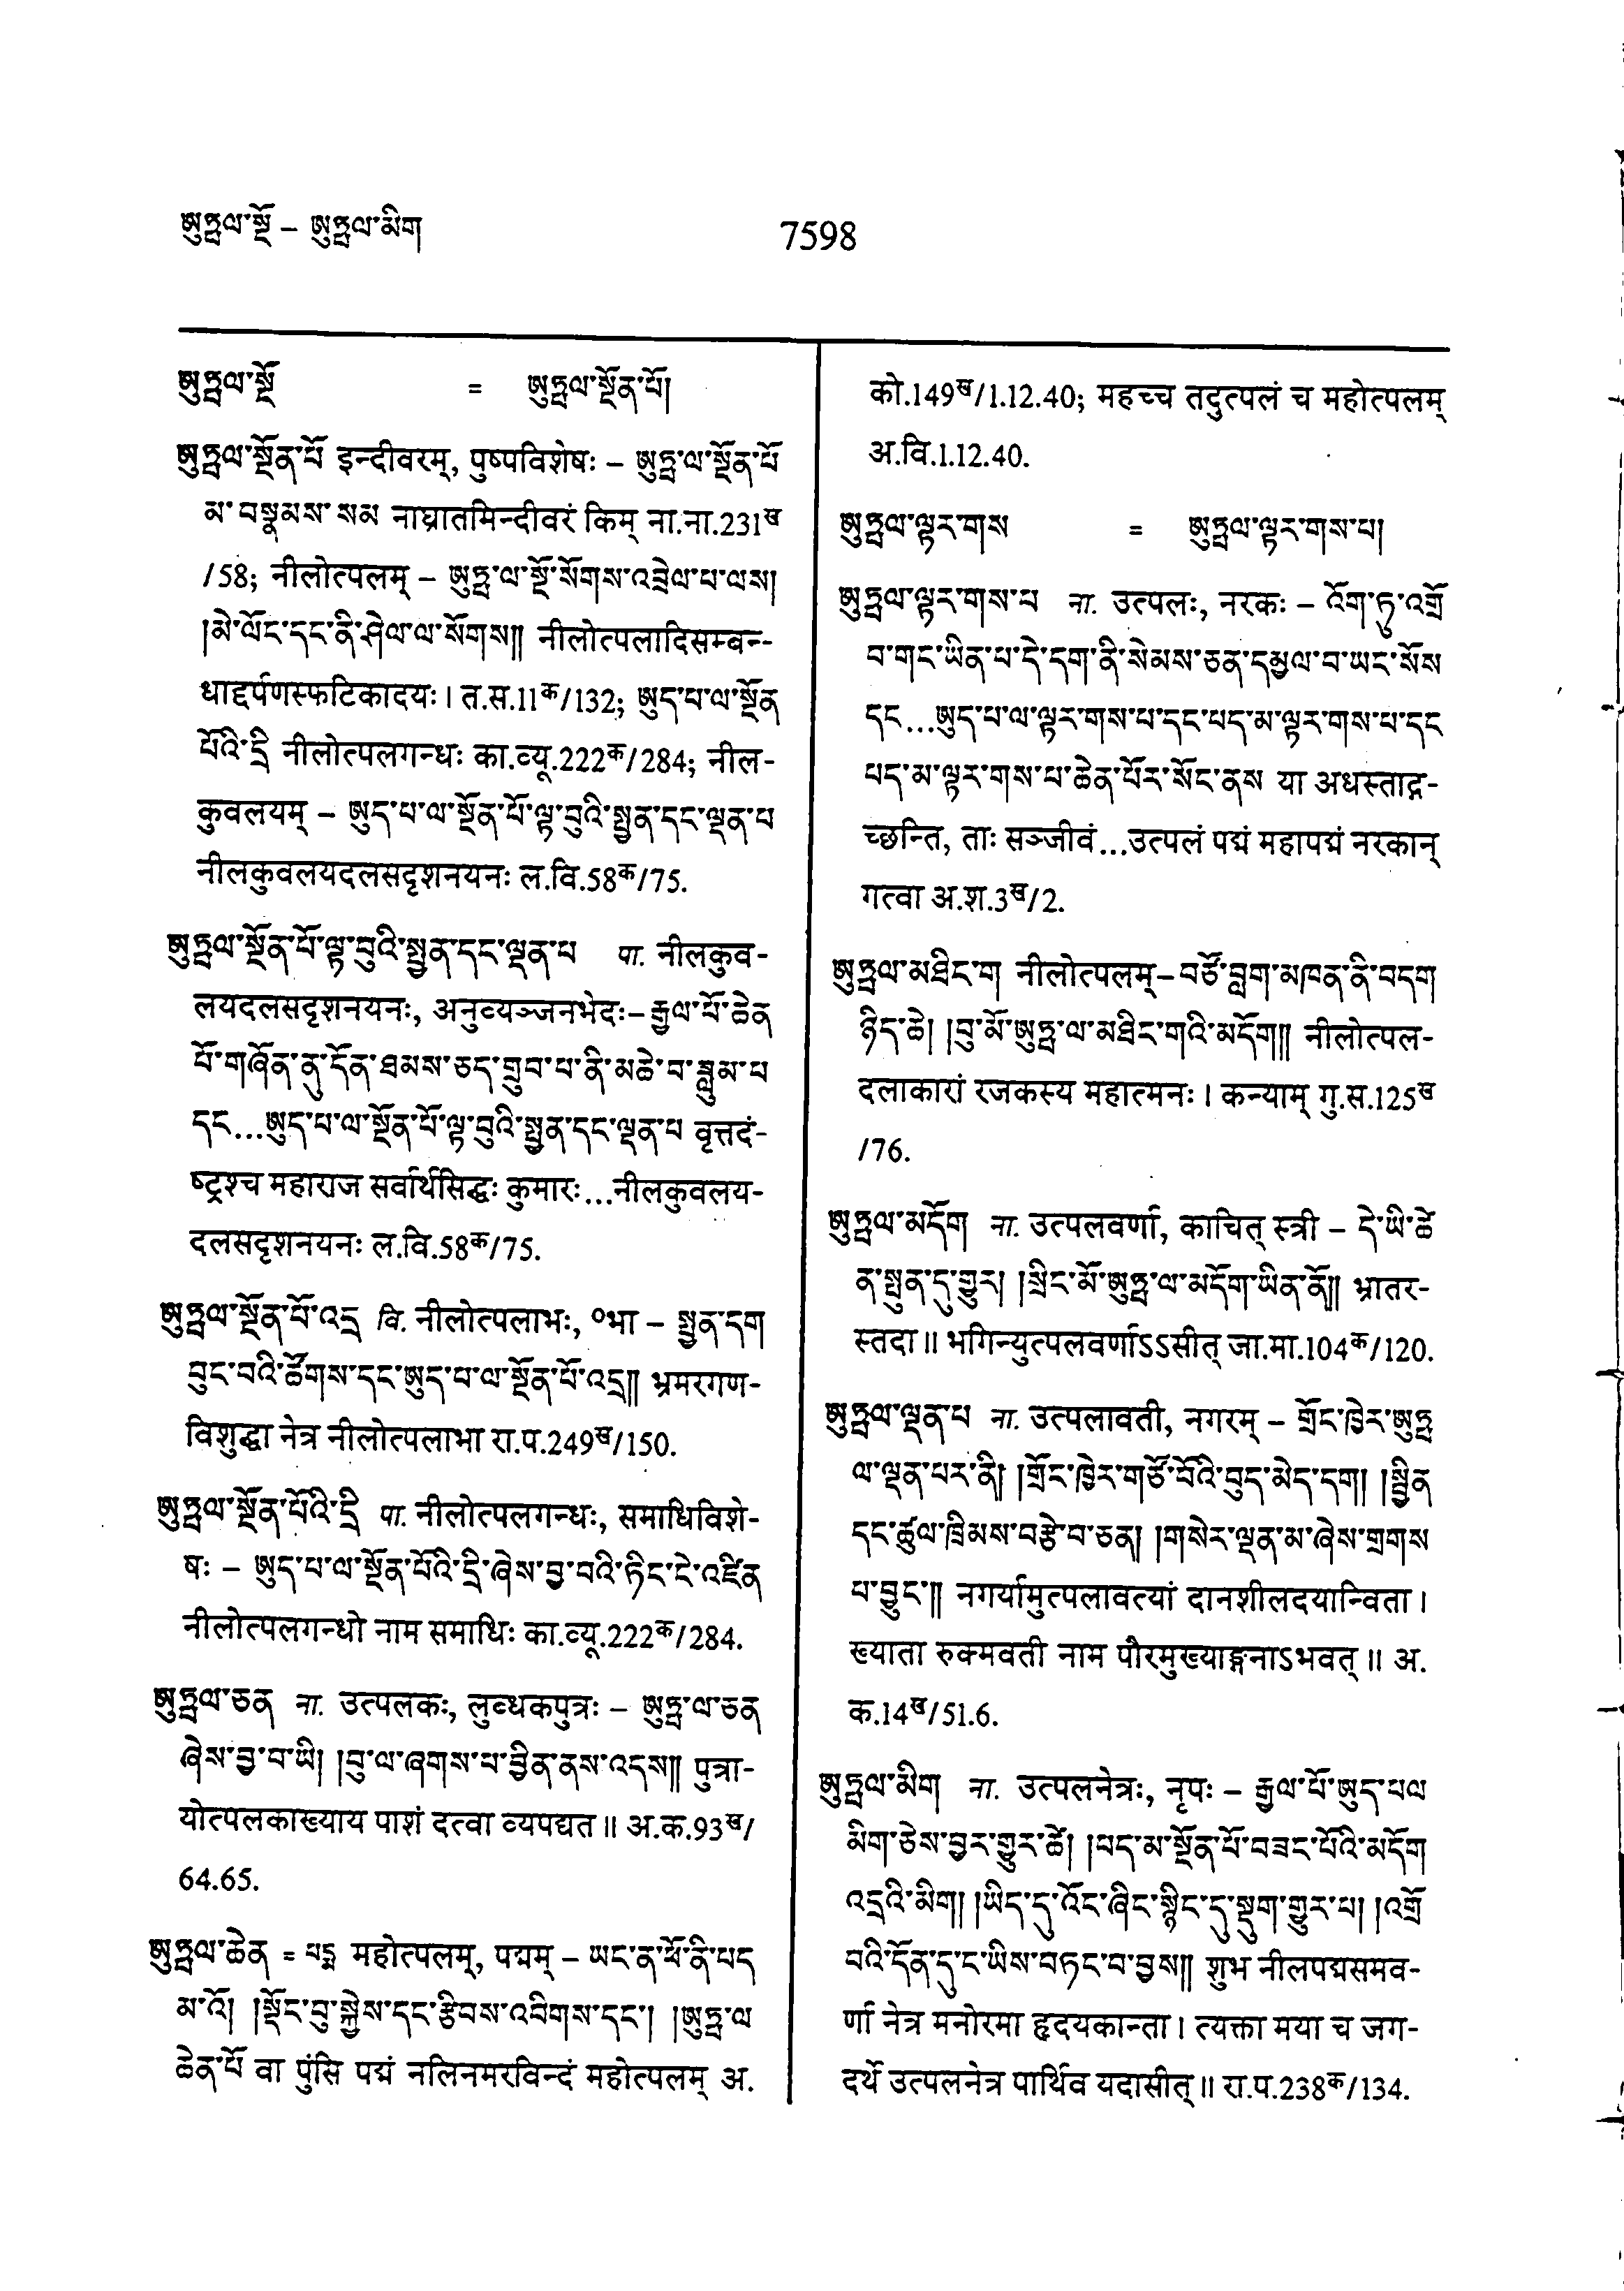 ཨུཏྤལ་སྔོ – ཨུཏྤལ་མིག
7598
ཨུཏྤལ་སྔོ = ཨུཏྤལ་སྔོན་པོ།
ཨུཏྤལ་སྔོན་པོ इन्दीवरम्, पुष्पविशेषः – ཨུཏྤ་ལ་སྔོན་པོ
མ་བསྣམས་སམ नाघ्रातमिन्दीवरं किम् ना.ना.231ख
/58; नीलोत्पलम् – ཨུཏྤ་ལ་སྔོ་སོགས་འབྲེལ་པ་ལས།
།མེ་ལོང་དང་ནི་ཤེལ་ལ་སོགས།། नीलोत्पलादिसम्बन्-
धाद्दर्पणस्फटिकादयः। त.स.11क/132; ཨུད་པ་ལ་སྔོན
པོའི་དྲི नीलोत्पलगन्धः का.व्यू.222क/284; नील-
कुवलयम् – ཨུད་པ་ལ་སྔོན་པོ་ལྟ་བུའི་སྤྱན་དང་ལྡན་པ
नीलकुवलयदलसदृशनयनः ल.वि.58क/75.
ཨུཏྤལ་སྔོན་པོ་ལྟ་བུའི་སྤྱན་དང་ལྡན་པ पा. नीलकुव-
लयदलसदृशनयनः, अनुव्यञ्जनभेदः– རྒྱལ་པོ་ཆེན
པོ་གཞོན་ནུ་དོན་ཐམས་ཅད་གྲུབ་པ་ནི་མཆེ་བ་ཟླུམ་པ
དང...ཨུད་པ་ལ་སྔོན་པོ་ལྟ་བུའི་སྤྱན་དང་ལྡན་པ वृत्तदं-
ष्ट्रश्च महाराज सर्वार्थसिद्धः कुमारः...नीलकुवलय-
दलसदृशनयनः ल.वि.58क/75.
ཨུཏྤལ་སྔོན་པོ་འདྲ वि. नीलोत्पलाभः, ०भा – སྤྱན་དག
བུང་བའི་ཚོགས་དང་ཨུད་པ་ལ་སྔོན་པོ་འདྲ།། भ्रमरगण-
विशुद्धा नेत्र नीलोत्पलाभा रा.प.249ख/150.
ཨུཏྤལ་སྔོན་པོའི་དྲི पा. नीलोत्पलगन्धः, समाधिविशे-
षः – ཨུད་པ་ལ་སྔོན་པོའི་དྲི་ཞེས་བྱ་བའི་ཏིང་ངེ་འཛིན
नीलोत्पलगन्धो नाम समाधिः का.व्यू.222क/284.
ཨུཏྤལ་ཅན ना. उत्पलकः, लुब्धकपुत्रः – ཨུཏྤ་ལ་ཅན
ཞེས་བྱ་བ་ཡི། །བུ་ལ་ཞགས་པ་བྱིན་ནས་འདས།། पुत्रा-
योत्पलकाख्याय पाशं दत्वा व्यपद्यत॥ अ.क.93ख/
64.65.
ཨུཏྤལ་ཆེན = པདྨ महोत्पलम्, पद्मम् – ཡང་ན་ཕོ་ནི་པད
མ་འོ། །སྡོང་བུ་སྐྱེས་དང་རྩིབས་འབིགས་དང་། །ཨུཏྤ་ལ
ཆེན་པོ वा पुंसि पद्मं नलिनमरविन्दं महोत्पलम् अ.
को.149ख/1.12.40; महच्च तदुत्पलं च महोत्पलम्
अ.वि.1.12.40.
ཨུཏྤལ་ལྟར་གས = ཨུཏྤལ་ལྟར་གས་པ།
ཨུཏྤལ་ལྟར་གས་པ ना. उत्पलः, नरकः – འོག་ཏུ་འགྲོ
བ་གང་ཡིན་པ་དེ་དག་ནི་སེམས་ཅན་དམྱལ་བ་ཡང་སོས
དང...ཨུད་པ་ལ་ལྟར་གས་པ་དང་པད་མ་ལྟར་གས་པ་དང
པད་མ་ལྟར་གས་པ་ཆེན་པོར་སོང་ནས या अधस्ताद्ग-
च्छन्ति, ताः सञ्जीवं...उत्पलं पद्मं महापद्मं नरकान्
गत्वा अ.श.3ख/2.
ཨུཏྤལ་མཐིང་ག नीलोत्पलम्– བཙོ་བླག་མཁན་ནི་བདག
ཉིད་ཆེ། །བུ་མོ་ཨུཏྤ་ལ་མཐིང་གའི་མདོག།། नीलोत्पल-
दलाकारां रजकस्य महात्मनः। कन्याम् गु.स.125ख
/76.
ཨུཏྤལ་མདོག ना. उत्पलवर्णा, काचित् स्त्री – དེ་ཡི་ཚེ
ན་སྤུན་དུ་གྱུར། །སྲིང་མོ་ཨུཏྤ་ལ་མདོག་ཡིན་ནོ།། भ्रातर-
स्तदा॥ भगिन्युत्पलवर्णाऽऽसीत् जा.मा.104क/120.
ཨུཏྤལ་ལྡན་པ ना. उत्पलावती, नगरम् – གྲོང་ཁྱེར་ཨུཏྤ
ལ་ལྡན་པར་ནི། །གྲོང་ཁྱེར་གཙོ་བོའི་བུད་མེད་དག། །སྦྱིན
དང་ཚུལ་ཁྲིམས་བརྩེ་བ་ཅན། །གསེར་ལྡན་མ་ཞེས་གྲགས
པ་བྱུང་།། नगर्यामुत्पलावत्यां दानशीलदयान्विता।
ख्याता रुक्मवती नाम पौरमुख्याङ्गनाऽभवत्॥ अ.
क.14ख/51.6.
ཨུཏྤལ་མིག ना. उत्पलनेत्रः, नृपः – རྒྱལ་པོ་ཨུད་པལ
མིག་ཅེས་བྱར་གྱུར་ཚེ། །པད་མ་སྔོན་པོ་བཟང་པོའི་མདོག
འདྲའི་མིག། །ཡིད་དུ་འོང་ཞིང་སྙིང་དུ་སྡུག་གྱུར་པ། །འགྲོ
བའི་དོན་དུ་ང་ཡིས་བཏང་བ་བྱས།། शुभ नीलपद्मसमव-
र्णा नेत्र मनोरमा हृदयकान्ता। त्यक्ता मया च जग-
दर्थे उत्पलनेत्र पार्थिव यदासीत्॥ रा.प.238क/134.